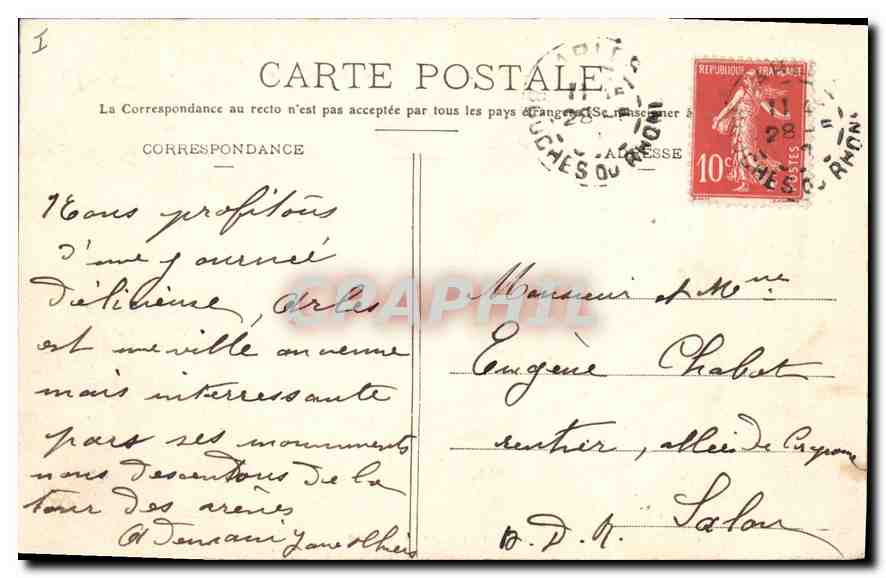 I
CARTE POSTALE
La Correspondance au recto n'est pas acceptée par tous les pays étrangers (Se renseigner à
CORRESPONDANCE
Nous profitons
d'une journeé
délicieuse, Arles
est une ville ancienne
mais interressante
pars ses monuments
nous descendons de la
tour des arènes
A demain
ADRESSE
Monsieur et Mme
Eugène Chabot
rentier, allées de
Salon
B. D. R.
REPUBLIQUE FRANÇAISE
10c
POSTES
11
28
BOUCHES DU RHONE
11
28
CHES DU RHONE
CPAPHIL